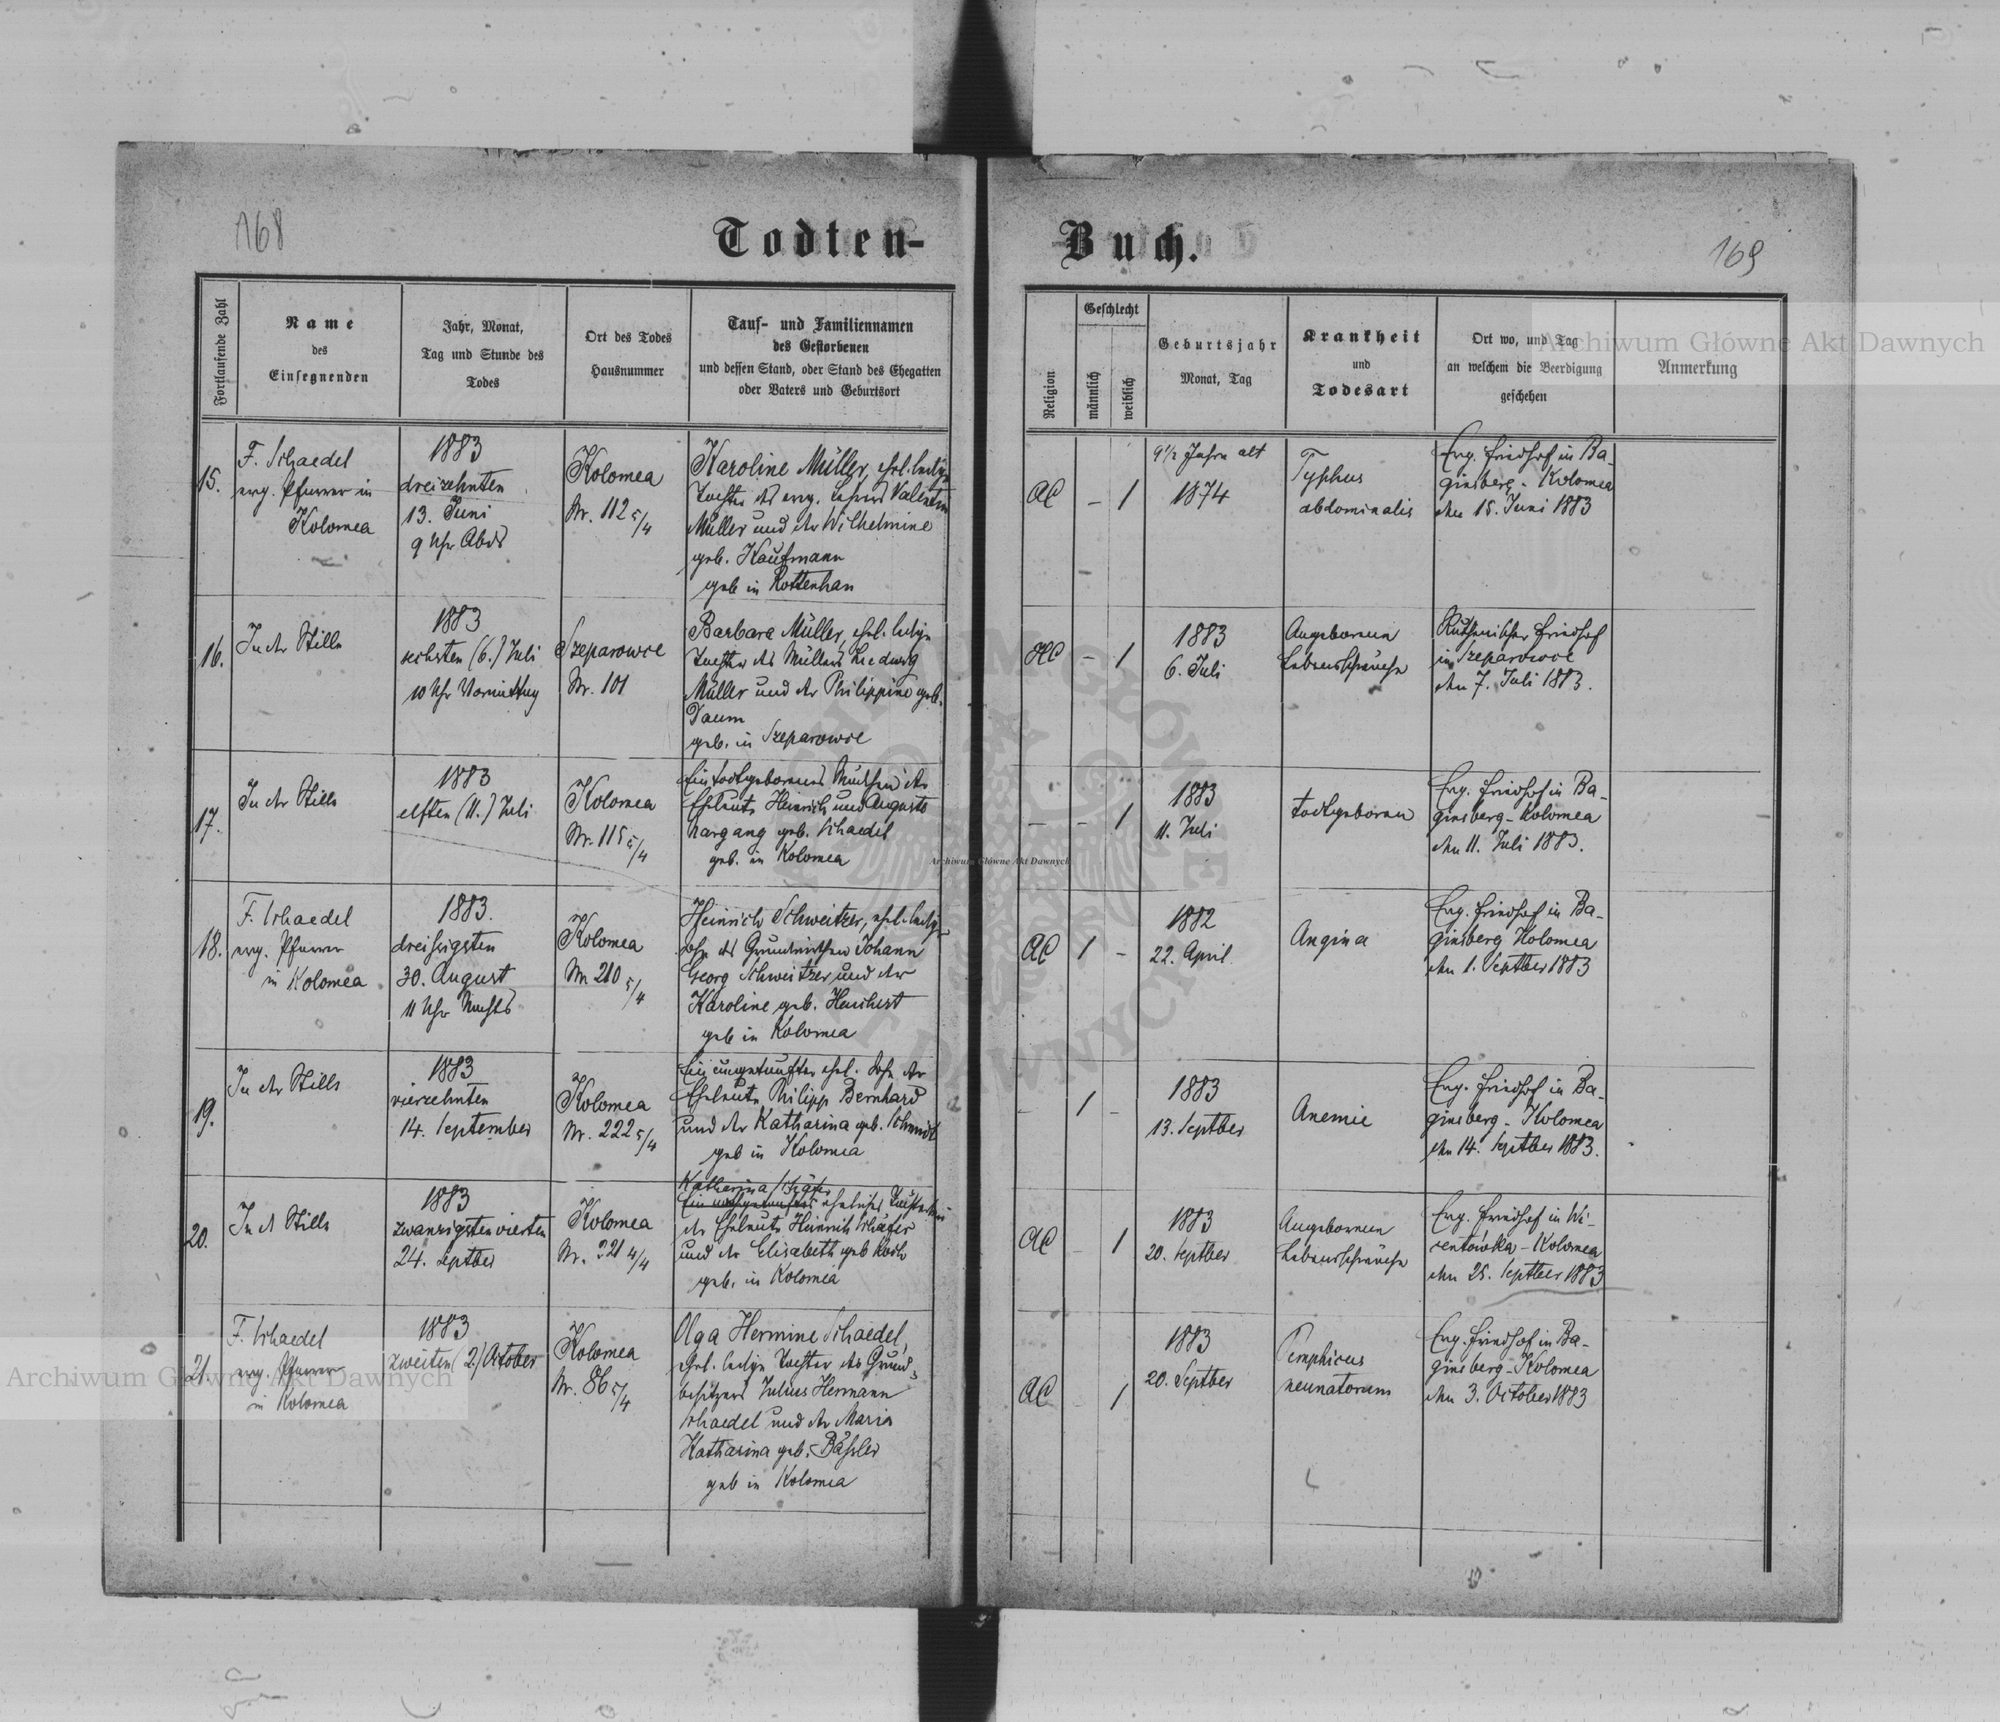 168
Todten-
Buch.
169
Fortlaufende Zahl
Name
des
Einsegnenden
Jahr, Monat,
Tag und Stunde des
Todes
Ort des Todes
Hausnummer
Tauf- und Familiennamen
des Gestorbenen
und dessen Stand, oder Stand des Ehegatten
oder Vaters und Geburtsort
Religion
Geschlecht
männlich
weiblich
Geburtsjahr
Monat, Tag
Krankheit
und
Todesart
Ort wo, und Tag
an welchem die Beerdigung
geschehen
Anmerkung
15.
F. Schaedel
evg. Pfarrer in
Kolomea
1883
dreizehnten
13. Juni
9 Uhr Abds
Kolomea
Nr. 112 5/4
Karoline Müller, ehel. ledige
Tochter des evg. Lehrers Valentin
Müller und der Wilhelmine
geb. Kaufmann
geb in Rottenhan
AC
– 1
9 1/2 Jahre alt
1874
Typhus
abdominalis
Evg. Friedhof in Ba-
ginsberg - Kolomea
den 15. Juni 1883
16.
In der Stille
1883
sechsten (6.) Juli
10 Uhr Vormittag
Szeparowce
Nr. 101
Barbara Müller, ehel. ledige
Tochter des Müllers Ludwig
Müller und der Philippine geb.
Daum
geb. in Szeparowce
HC
– 1
1883
6. Juli
Angeborene
Lebensschwäche
Ruthenischer Friedhof
in Szeparowce
den 7. Juli 1883.
17.
In der Stille
1883
elften (11.) Juli
Kolomea
Nr. 115 5/4
Ein todtgeborenes Mädchen der
Eheleute Heinrich und Auguste
Nargang geb. Schaedel
geb. in Kolomea
– – 1
1883
11. Juli
todtgeboren
Evg. Friedhof in Ba-
ginsberg - Kolomea
den 11. Juli 1883.
18.
F. Schaedel
evg. Pfarrer
in Kolomea
1883.
dreißigsten
30. August
11 Uhr Nachts
Kolomea
Nr. 210 5/4
Heinrich Schweitzer, ehel. lediger
Sohn des Grundwirthen Johann
Georg Schweitzer und der
Karoline geb. Hauchert
geb in Kolomea
AC
1 –
1882
22. April
Angina
Evg. Friedhof in Ba-
ginsberg Kolomea
den 1. Septber 1883
19.
In der Stille
1883
vierzehnten
14. September
Kolomea
Nr. 222 5/4
Ein ungetaufter ehel. Sohn der
Eheleute Philipp Bernhard
und der Katharina geb. Schmidt
geb in Kolomea
– 1 –
1883
13. Septber
Anemie
Evg. Friedhof in Ba-
ginsberg - Kolomea
den 14. Septber 1883.
20.
In d Stille
1883
zwanzigsten vierten
24. Septber
Kolomea
Nr. 221 4/4
Katharina Schäfer
Ein ungetauftes eheliches
der Eheleute Heinrich Schäfer
und der Elisabeth geb Koch
geb. in Kolomea
AC
– 1
1883
20. Septber
Angeborene
Lebensschwäche
Evg. Friedhof in Wi-
centowka - Kolomea
den 25. Septber 1883
21.
F. Schaedel
evg. Pfarrer
in Kolomea
1883
zweiten (2.) October
Kolomea
Nr. 86 5/4
Olga Hermine Schaedel,
Ehel. ledige Tochter des Grund-
besitzers Julius Hermann
Schaedel und der Maria
Katharina geb. Bäßler
geb in Kolomea
AC
– 1
1883
20. Septber
Pemphicus
neunatorum
Evg. Friedhof in Ba-
ginsberg - Kolomea
den 3. October 1883
Archiwum Główne Akt Dawnych
Archiwum Główne Akt Dawnych
Archiwum Główne Akt Dawnych